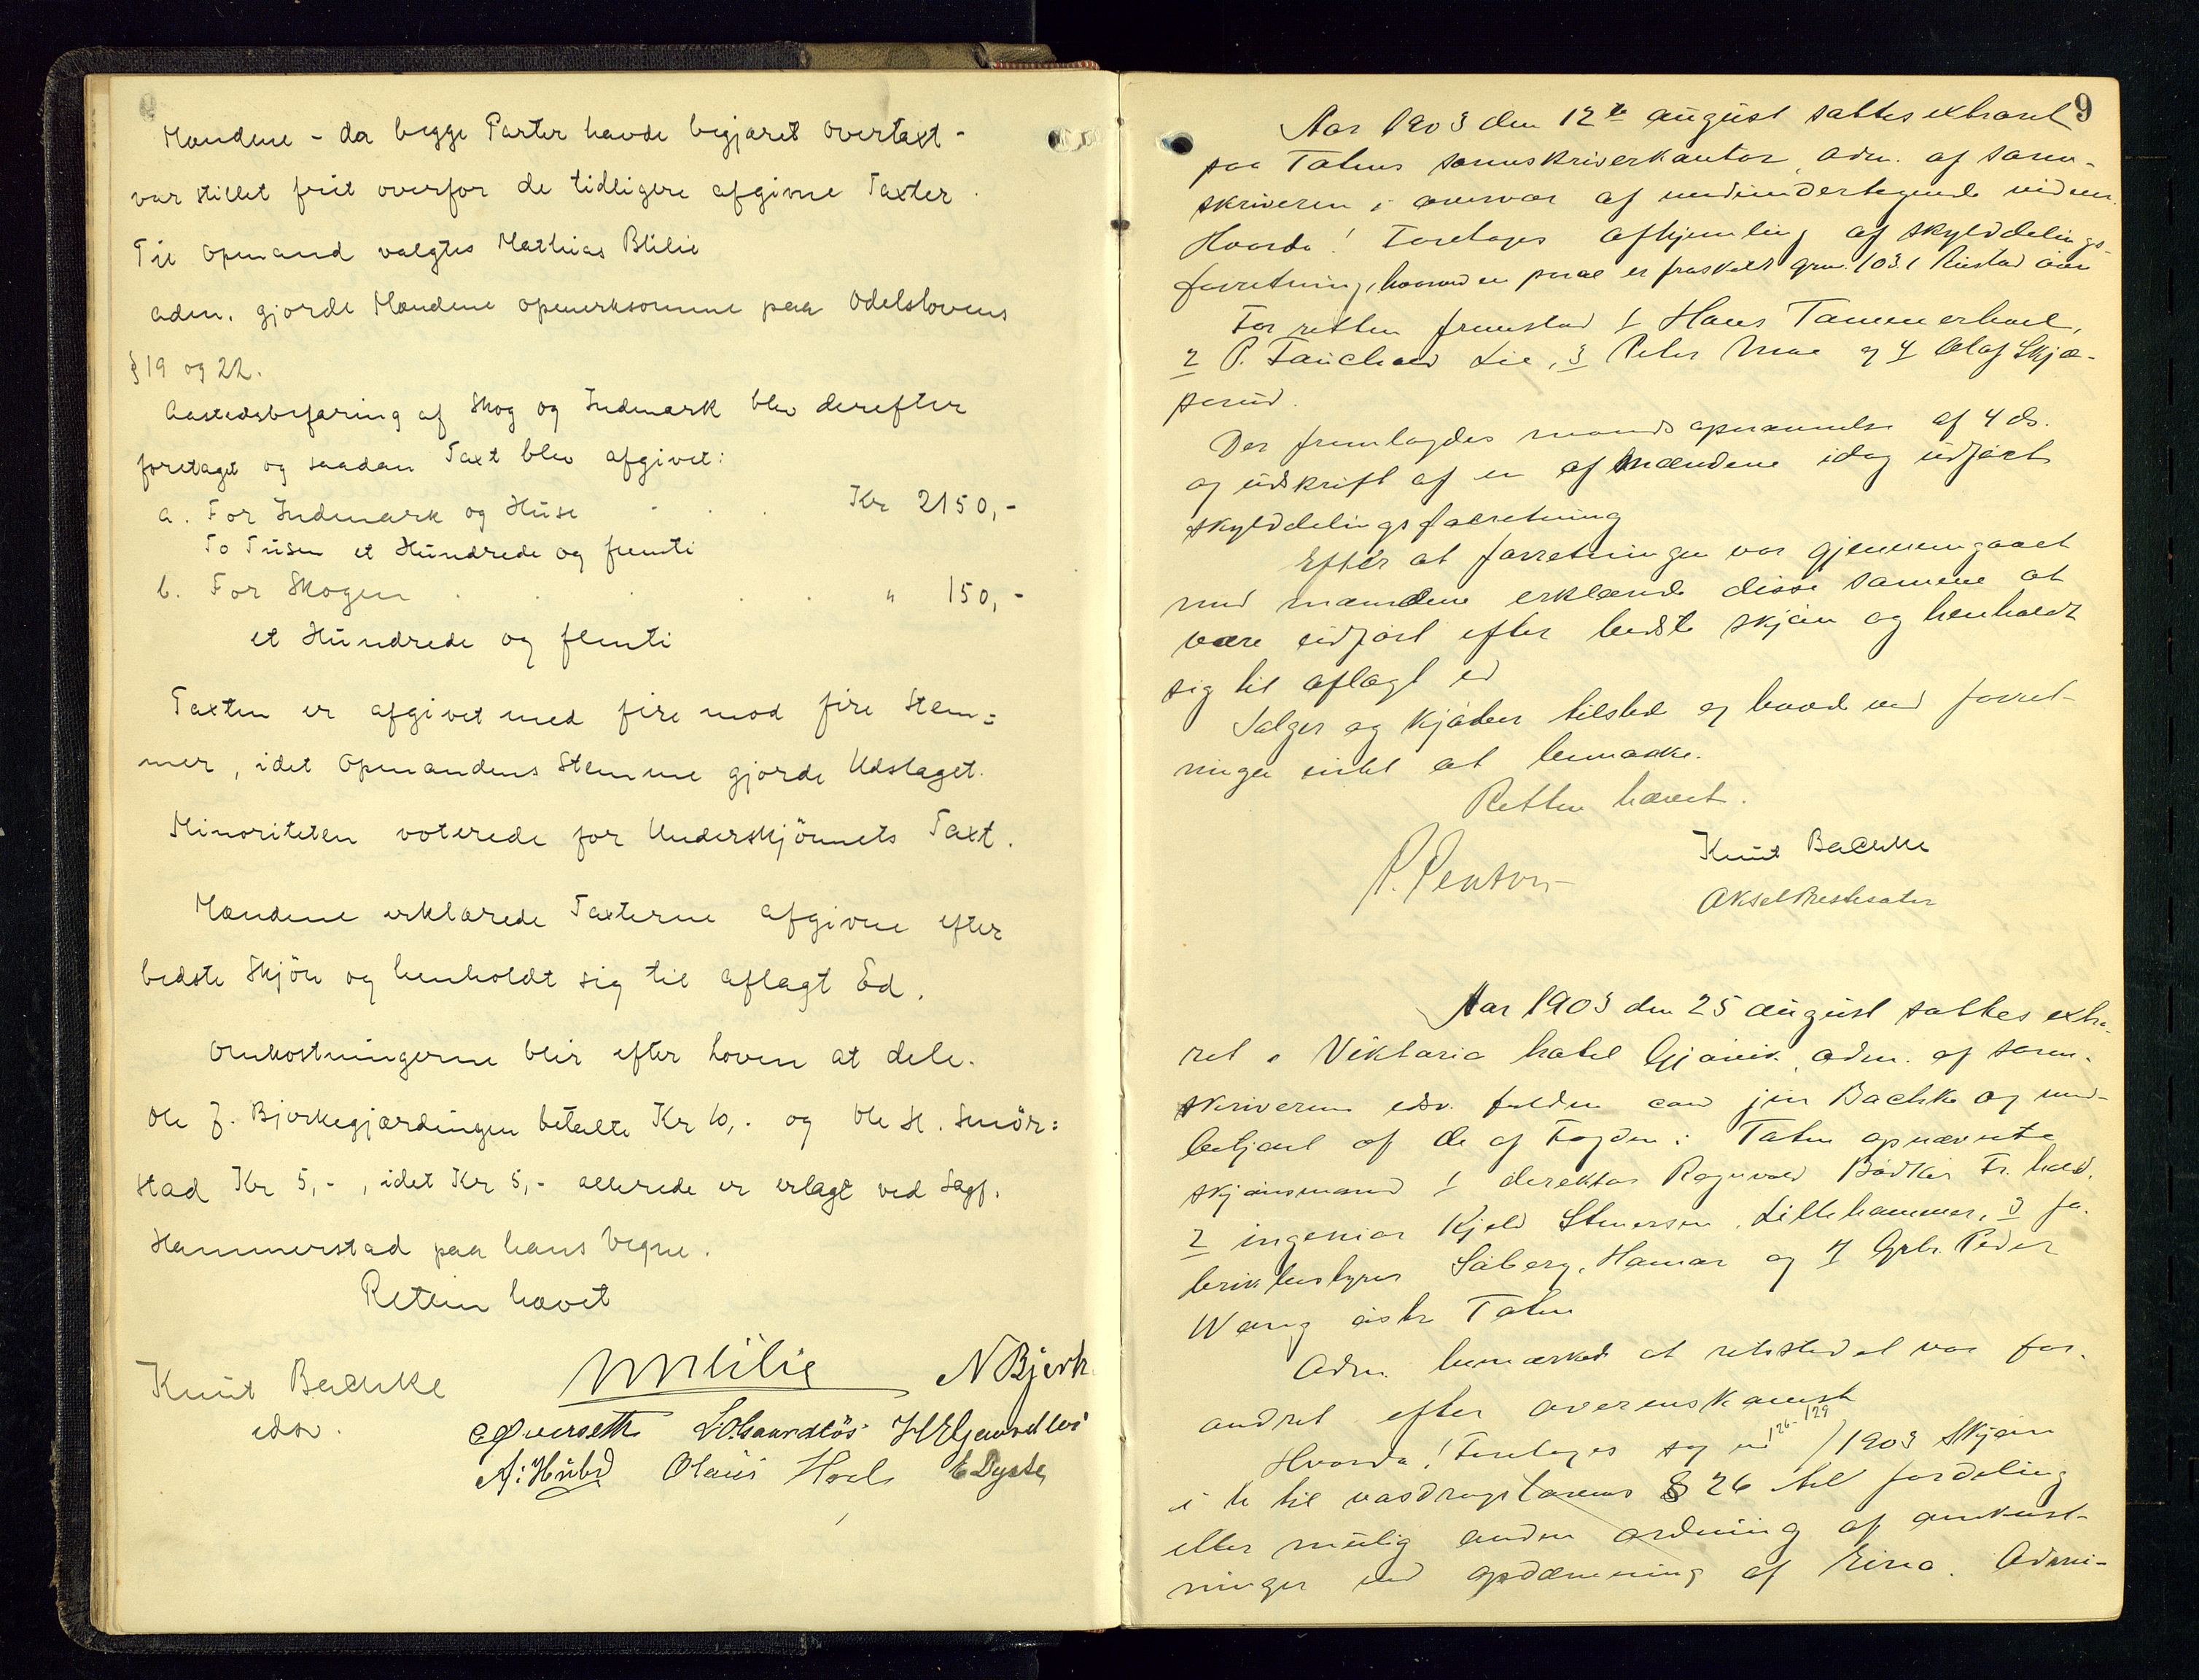 Mændene - da begge Parter havde begjæret Overtaxt -
var stillet frit overfor de tidligere afgivne Taxter.
Til Opmand valgtes Mathias Blilie
Adm. gjorde Mændene opmerksomme paa Odelslovens
§ 19 og 22.
Aastedsbefaring af Skog og Indmark blev derefter
foretaget og saadan Taxt blev afgivet:
a. For Indmark og Huse . . . Kr 2150,-
To Tusen et Hundrede og femti
b. For Skogen . . . . . " 150,-
et Hundrede og femti
Taxten er afgivet med fire mod fire Stem=
mer, idet Opmandens Stemme gjorde Udslaget.
Minoriteten voterede for Underskjönnets Taxt.
Mændene erklærede Taxterne afgivne efter
bedste Skjön og henholdt sig til aflagt Ed.
Omkostningerne blir efter Loven at dele.
Ole J. Bjørkegjærdingen betalte Kr 10,- og Ole H. Smör=
stad Kr 5,-, idet Kr 5,- allerede er erlagt ved Sagf.
Hammerstad paa hans Vegne.
Retten hævet
Knut Bachke
edsv.
MMlilie
N Bjerk
A: Hubred Olaus Hoel E Dyste
9
Aar 1903 den 12te august sattes extraret
paa Totens sorenskriverkontor, adm. af soren-
skriveren i overvær af medundertegnede vidner.
Hvorda! Foretages afhjemling af skylddelings-
forretning, hvorved en parcel er fraskilt grn. 103.1 Rustad
For retten fremstod 1 Hans Tømmerhol,
2 P. Fauchald Lie, 3 Peter Moe og 4 Olaf Skjæ-
perud.
Der fremlagdes mandsopnævnelse af 4 ds.
og udskrift af en af mændene idag udført
skylddelingsforretning
Efter at forretningen var gjennemgaaet
med mændene erklærede disse samme at
være udført efter bedste skjøn og henholdt
sig til aflagt ed
Sælger og kjøber tilstede og havde ved forret-
ningen intet at bemærke.
Retten hævet.
Knut Bachke
P. Pentson
Aksel Prestesæter
Aar 1903 den 25 august sattes extra-
ret i Viktoria hotel Gjøvik, adm. af soren-
skriverens edsv. fuldm. cand jur Bachke og med-
betjent af de af Fogden i Toten opnævnte
skjønsmænd 1 direktør Ragnvald Bødtker Fr. hald,
2 ingeniør Kjeld Stenersen, Lillehammer, 3 fa-
brikbestyrer Søberg, Hamar og 4 Grbr. Peder
Wang østr Toten
Adm. bemærkede at retstedet var for-
andret efter overenskomst
Hvorda! Foretages sag no 126-129/1903 Skjøn
i h til vasdragslovens § 26 til fordeling
eller mulig anden ordning af omkost-
ninger ved opdæmning af Eina. Admi-